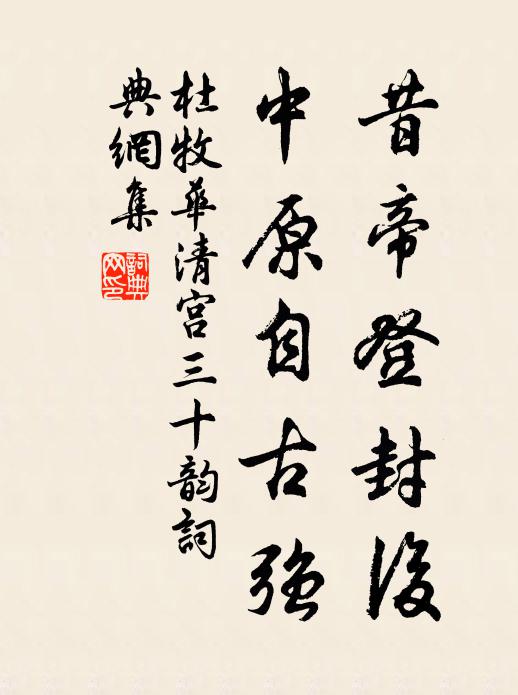 昔帝登封後
中原自古強
杜牧華清宮三十韵詞
典網集
詞典
网印